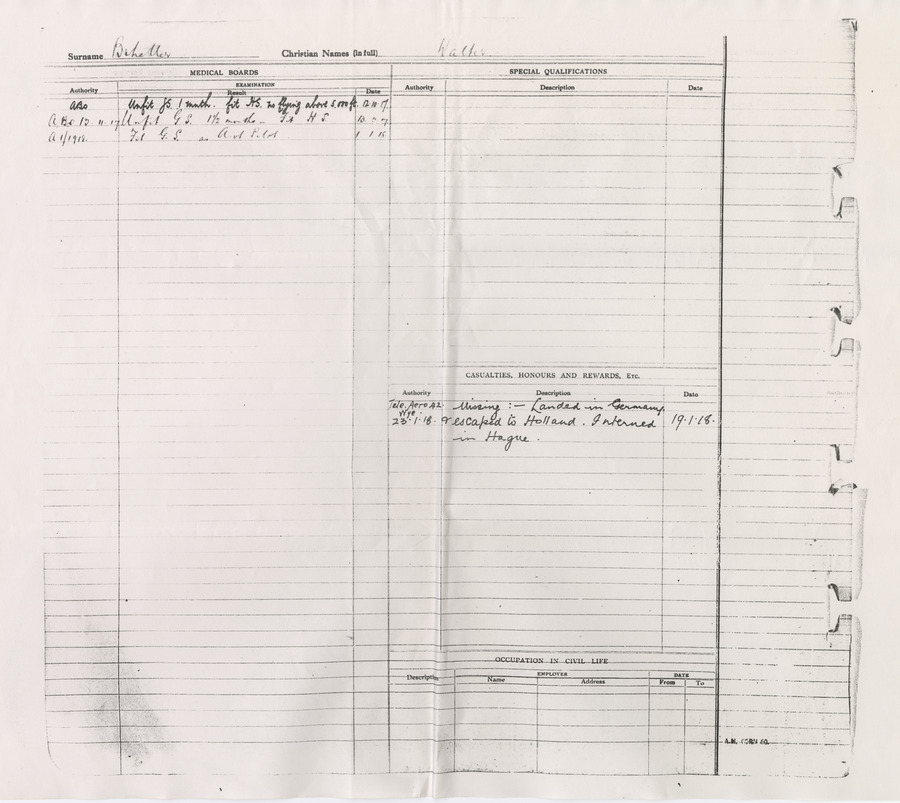 Surname Christian Names (in full) Walter
MEDICAL BOARDS
EXAMINATION
Authority Result Date
ABo Unfit GS. 1 month. fit HS. no flying above 5,000 ft. 12.10.17
A.Bo 13 11 17 Unfit G.S. 1½ months - Fit H S.
A 1/1918. Fit G.S. as Act Pilot
SPECIAL QUALIFICATIONS
Authority Description Date
CASUALTIES, HONOURS AND REWARDS, Etc.
Authority Description Date
Tele. Aero A2. Missing :— Landed in Germany
23.1.18. & escaped to Holland. Interned 19.1.18.
in Hague.
OCCUPATION IN CIVIL LIFE
Description EMPLOYER DATE
Name Address From To
A.M. FORM